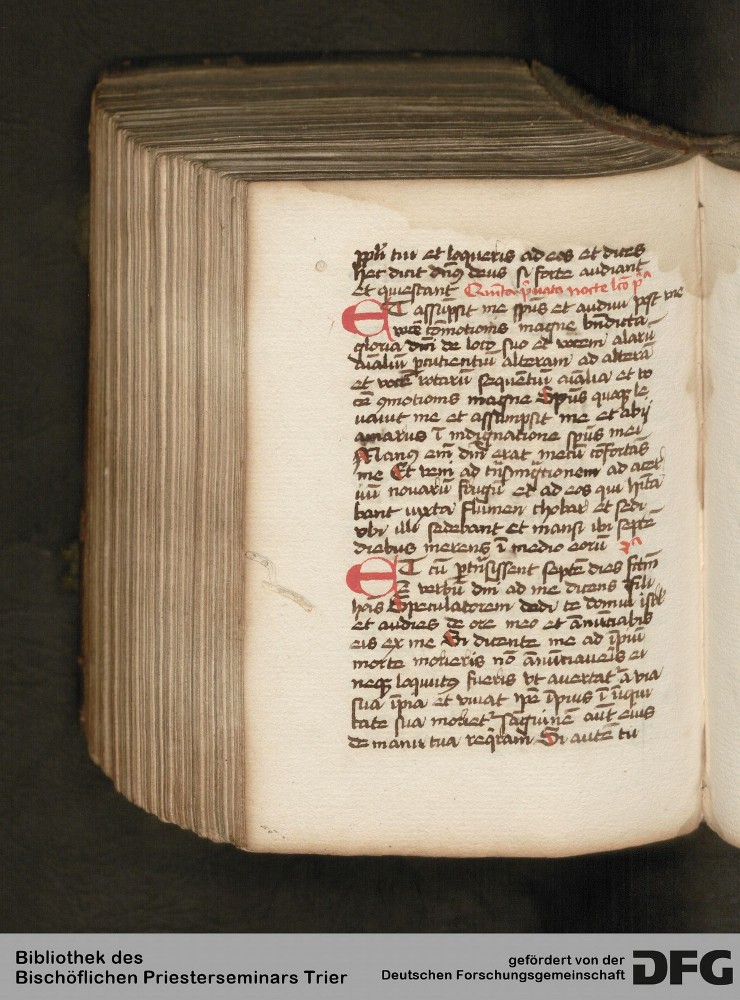 ppli tui et loqueris ad eos et dices
hec dicit dn9 deus si forte audiant
et quiescant Quinta p̱uata nocte lco pᵃ
ET assupsit me spūs et audiui post me
vocē cōmotionis magne bn̄dicta
gloria dni de loco suo et vocem alarū
aīaliū pcutientiū alteram ad alterā
et vocē rotarū sequentiū aīalia et vo
cē 9motionis magne Spūs quoqꝫ le
uauit me et assumpsit me et abij
amarus ī indignatione spūs mei
Man9 em̄ dn̄i erat mecū cōfortās
me Et veni ad trāsmigtionem ad acer
uū nouarū frugū et ad eos qui hīta
bant iuxta flumen chobar et sedi
vbi illi sedebant et mansi ibi septē
diebus merens ī medio eorū
ET cū ptrāsissent septē dies fctm̄
ē verbū dni ad me dicens Fili
hoīs Speculatorem dedi te domui isrl
et audies de ore meo et annūciabis
eis ex me Si dicente me ad īpiū
morte morieris nō annūciaueris ei
neqꝫ loquut9 fueris vt auertat' a via
sua īpia et viuat ipē īpius ī īiqui
tate sua moriet' sāguinē aūt eius
de manu tua reqram Si autē tu
Bibliothek des
Bischöflichen Priesterseminars Trier
gefördert von der
Deutschen Forschungsgemeinschaft
DFG